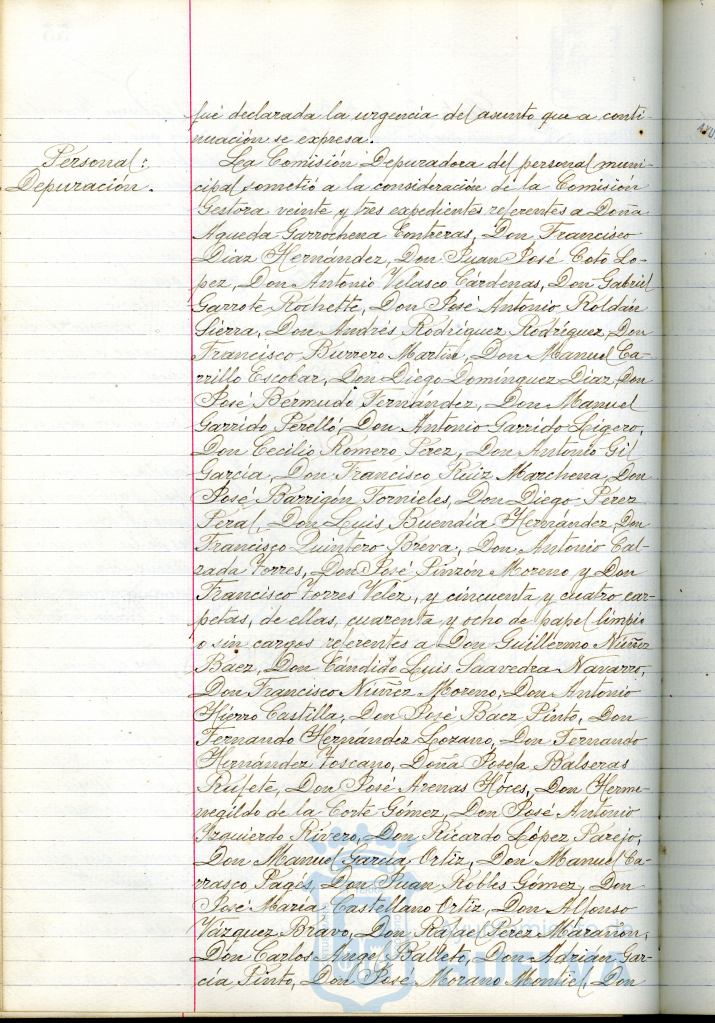 fué declarada la urgencia del asunto que a conti-
nuación se expresa.
Personal:
Depuración.
La Comisión Depuradora del personal muni-
cipal sometió a la consideración de la Comisión
Gestora veinte y tres expedientes referentes a Doña
Agueda Garrochena Contreras, Don Francisco
Diaz Hernandez, Don Juan José Coto Lo-
pez, Don Antonio Velasco Cárdenas, Don Gabriel
Garrote Rochette, Don José Antonio Roldán
Sierra, Don Andrés Rodriguez Rodríguez, Don
Francisco Burrero Martin, Don Manuel Ca-
rrillo Escobar, Don Diego Domínguez Diaz, Don
José Bermudo Fernández, Don Manuel
Garrido Perelló, Don Antonio Garrido Ligero,
Don Cecilio Romero Perez, Don Antonio Gil
García, Don Francisco Ruiz Marchena, Don
José Barrigón Tornieles, Don Diego Perez
Peral, Don Luis Buendia Hernández, Don
Francisco Quintero Breva, Don Antonio Cal-
zada Torres, Don José Pinzón Moreno y Don
Francisco Torres Velez, y cincuenta y cuatro car-
petas, de ellas, cuarenta y ocho de papel limpio
o sin cargos referentes a Don Guillermo Núñez
Baez, Don Cándido Luis Saavedra Navarro,
Don Francisco Núñez Moreno, Don Antonio
Hierro Castilla, Don José Baez Pinto, Don
Fernando Hernández Lozano, Don Fernando
Hernández Toscano, Doña Josefa Balseras
Rufete, Don José Arenas Hoces, Don Herme-
negildo de la Corte Gómez, Don José Antonio
Izquierdo Rivero, Don Ricardo López Parejo,
Don Manuel García Ortiz, Don Manuel Ca-
rrasco Pagés, Don Juan Robles Gómez, Don
José María Castellano Ortiz, Don Alfonso
Vázquez Bravo, Don Rafael Perez Marañón,
Don Carlos Angel Balleto, Don Adrian Gar-
cía Pinto, Don José Morano Montiel, Don